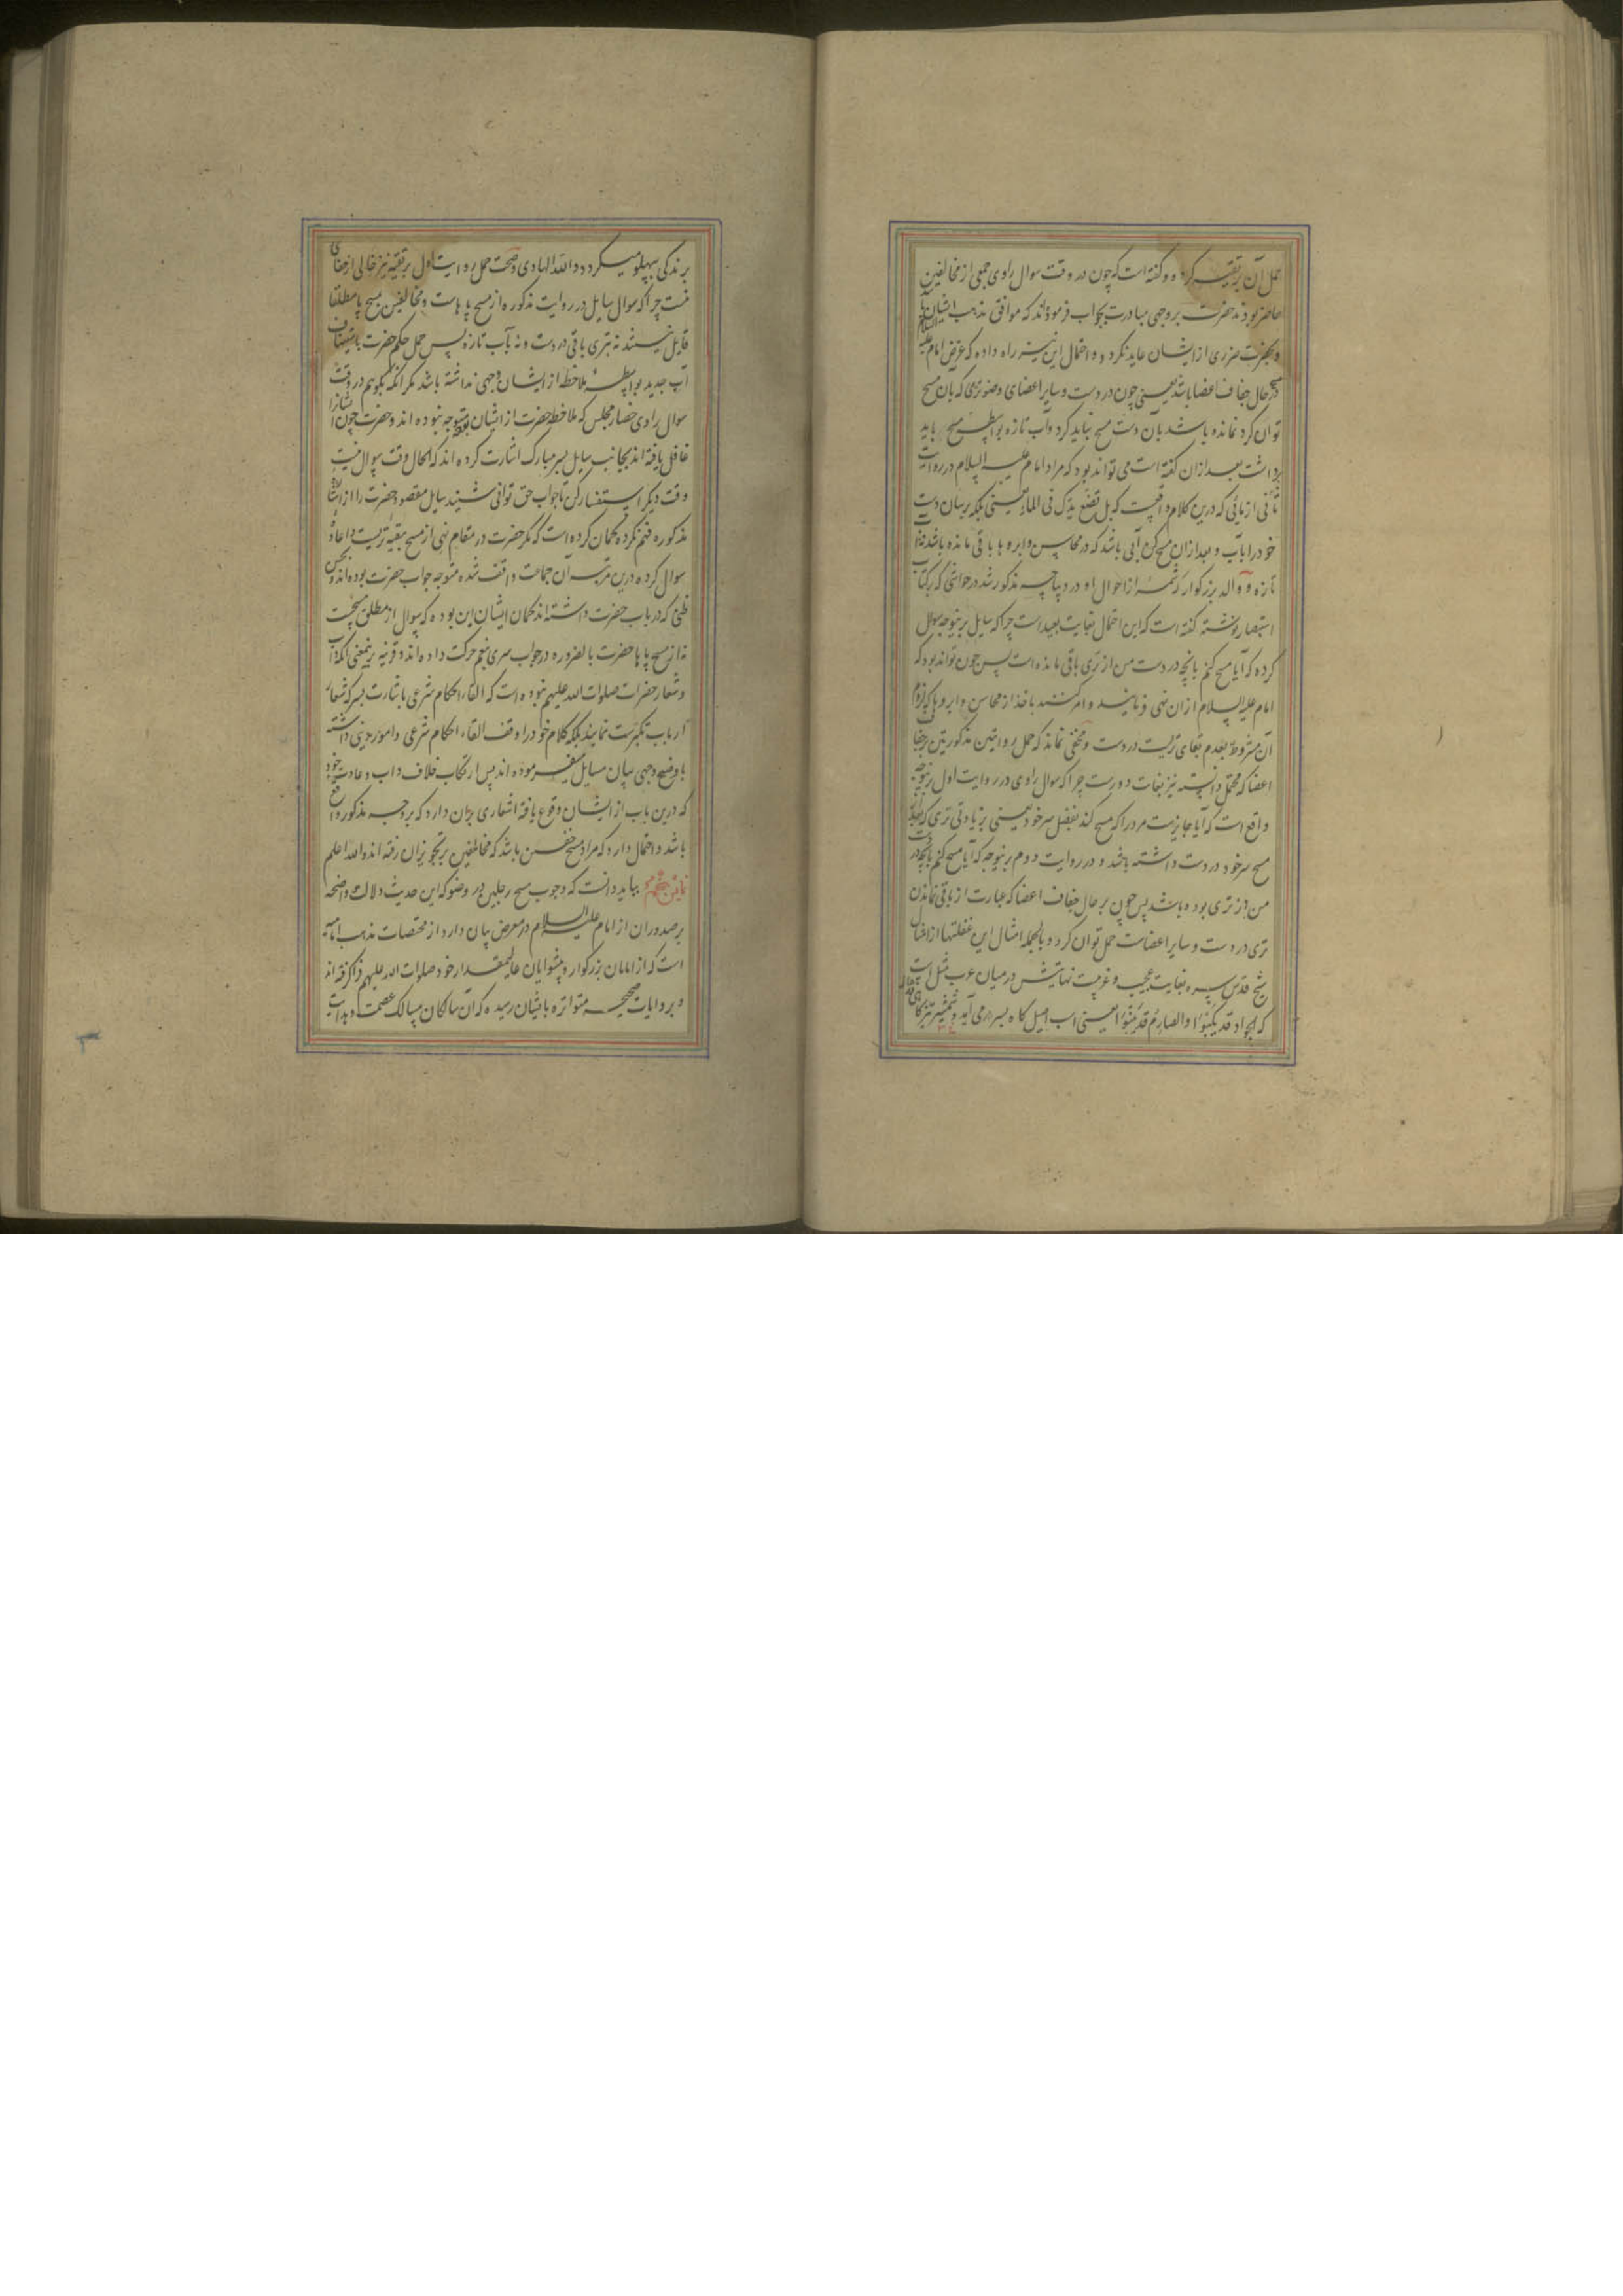 حمل آن بر تقیه کرده و گفته است که چون در وقت سوال راوی جمعی از مخالفین
حاضر بودند حضرت بر وجهی مبادرت بجواب فرموده‌اند که موافق مذهب ایشان باشد
و بحضرت ضرری از ایشان عاید نگردد و احتمال این نیز راه داده که غرض امام علیه السلام
مسح در حال جفاف اعضا باشد یعنی چون در دست و سایر اعضای وضو تری که بآن مسح
توان کرد نمانده باشد بآن دست مسح نباید کرد و آب تازه بواسطه مسح باید
برداشت بعد از ان گفته است می تواند بود که مراد امام علیه السلام در روایت
ثانی از بیانی که درین کلام واقعست که بل تضع یدک فی الماء یعنی بلکه برسان دست
خود را بآب و بعد ازان مسح کن آبی باشد که در محاسن و ابروها باقی مانده باشد نه آب
تازه و والد بزرگوار که شمه از احوال او در دیباچه مذکور شد در حواشی که بر کتاب
استبصار نوشته گفته است که این احتمال بغایت بعید است چرا که سایل برینوجه سوال
کرده که آیا مسح کنم بانچه در دست من از تری باقی مانده است پس چون تواند بود که
امام علیه السلام ازان نهی فرمایند و امر کنند باخذ از محاسن و ابروها که لزوم
آن مشروط بعدم بقای تریست در دست و مخفی نماند که حمل روایتین مذکورتین بر جفاف
اعضا که محتمل دانسته نیز بغایت دورست چرا که سوال راوی در روایت اول برینوجه
واقع است که آیا جایزست مرد را که مسح کند بفضل سر خود یعنی بزیادتی تری که
مسح سر خود در دست داشته باشد و در روایت دوم برینوجه که آیا مسح کنم بآنچه در دست
من از تری بوده باشد پس چون بر حال جفاف اعضا که عبارت از باقی نماندن
تری در دست و سایر اعضاست حمل توان کرد و بالجمله امثال این غفلتها از امثال
شیخ قدس سره بغایت عجیب و غریبست نهایتش در میان عرب مثل است
که الجواد قد یکبوا والصارم قد ینبوا یعنی اسب اصیل گاه بسر در می آید و شمشیر تیز گاهی
بر ندگی پهلو میگرد و والله الهادی و صحت حمل روایت اول بر تقیه نیز خالی از خفائی
نیست چرا که سوال سایل در روایت مذکوره از مسح پا هاست و مخالفین بمسح پا مطلقا
قایل نیستند نه بتری باقی در دست و نه بآب تازه پس حمل حکم حضرت باستیناف
آب جدید بواسطه ملاحظه از ایشان وجهی نداشته باشد مگر آنکه بگویم در وقت
سوال راوی حضار مجلس که ملاحظه حضرت از ایشان بوده متوجه نبوده اند و حضرت چون ایشانرا
غافل یافته اند بجانب سایل بسر مبارک اشارت کرده اند که الحال وقت سوال نیست
وقت دیگر استفسار کن تا جواب حق توانی شنید سایل مقصود حضرت را از اشارت
مذکوره فهم نکرده گمان کرده است که مگر حضرت در مقام نهی از مسح ببقیه تریست و اعاده
سوال کرده درین مرتبه آن جماعت واقف شده متوجه جواب حضرت بوده‌اند و بحسن
ظنی که در باب حضرت داشته اند گمان ایشان این بوده که سوال از مطلق مسحست
نه از مسح پا ها حضرت بالضروره در جواب سری بنعم حرکت داده اند و قرینه برینمعنی آنکه داب
و شعار حضرات صلوات الله علیهم نبوده است که القاء احکام شرعی باشارت بسر که شعار
ارباب تکبرست نمایند بلکه کلام خود را وقف القاء احکام شرعی و امور دینی داشته
باوضح وجهی بیان مسایل میفرموده اند پس ارتکاب خلاف داب و عادت خود
که درین باب از ایشان وقوع یافته اشعاری بران دارد که بر وجه مذکور واقع
باشد و احتمال دارد که مراد مسح خفین باشد که مخالفین بر تجویز آن رفته اند والله اعلم
بباید دانست که وجوب مسح رجلین در وضو که این حدیث دلالت واضحه
بر صدور آن از امام علیه السلام در معرض بیان دارد از مختصات مذهب امامیه
است که از امامان بزرگوار و پیشوایان عالیمقدار خود صلوات الله علیهم فرا گرفته اند
و بروایات صحیحه متواتره بایشان رسیده که آن سالکان مسالک عصمت و هدایت